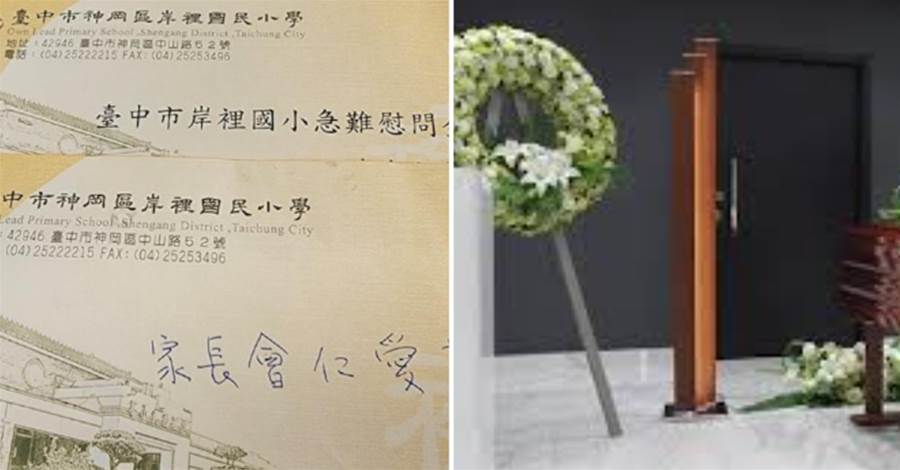 臺中市神岡區岸裡國民小學
Own Lead Primary School ,Shengang District ,Taichung City
地址：42946 臺中市神岡區中山路５２號
電話：(04)25222215 FAX：(04)25253496
臺中市岸裡國小急難慰問
中市神岡區岸裡國民小學
Lead Primary School ,Shengang District ,Taichung City
：42946 臺中市神岡區中山路５２號
(04)25222215 FAX：(04)25253496
家長會仁愛